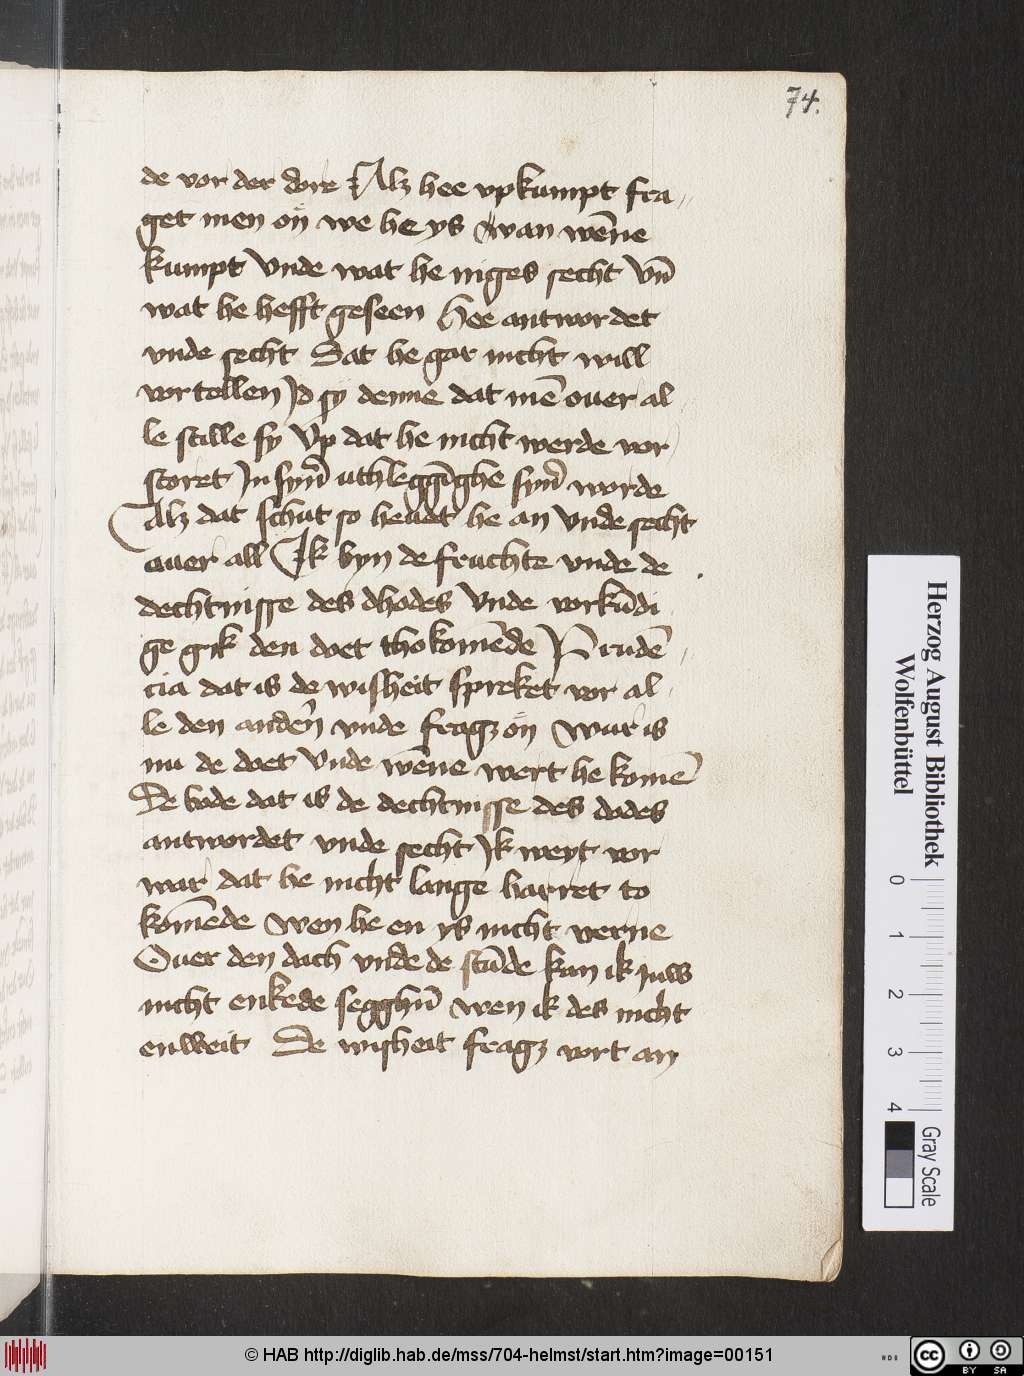 74.
de vor der dore Alz hee vpkumpt fra-
get men oͤn we he ys wan wēne
kumpt Vnde wat he niges secht Vn̄
wat he hefft geseen Hee antwordet
vnde secht Dat he gar nicht will
vortellen Jd sy denne dat mē ouer al
le stille sy Vp dat he nicht werde vor
storet Jn syn̄ uthleggīghe syn̄ worde
Alz dat schut so heuͤet he an Vnde secht
ouer all Ik byn de fruchte vnde de
dechtnisse des dhodes Vnde vorkūdi
ge gik den doet thokomēde Prudē-
cia dat is de wisheit spreket vor al-
le den andern̄ vnde fragz oͤn Wur is
nu de doet Vnde wēne wert he komē
De bode dat is de dechtnisse des dodes
antwordet vnde secht Jk weyt vor
war dat he nicht lange harret to
komēde Wen he en ys nicht verne
Ouer den dach vnde de stūde kan ik juw
nicht enkede segghn̄ Wen ik des nicht
enweit De wisheit fragz vort an
Herzog August Bibliothek
Wolfenbüttel
0 1 2 3 4
Gray Scale
© HAB http://diglib.hab.de/mss/704-helmst/start.htm?image=00151
cc BY SA